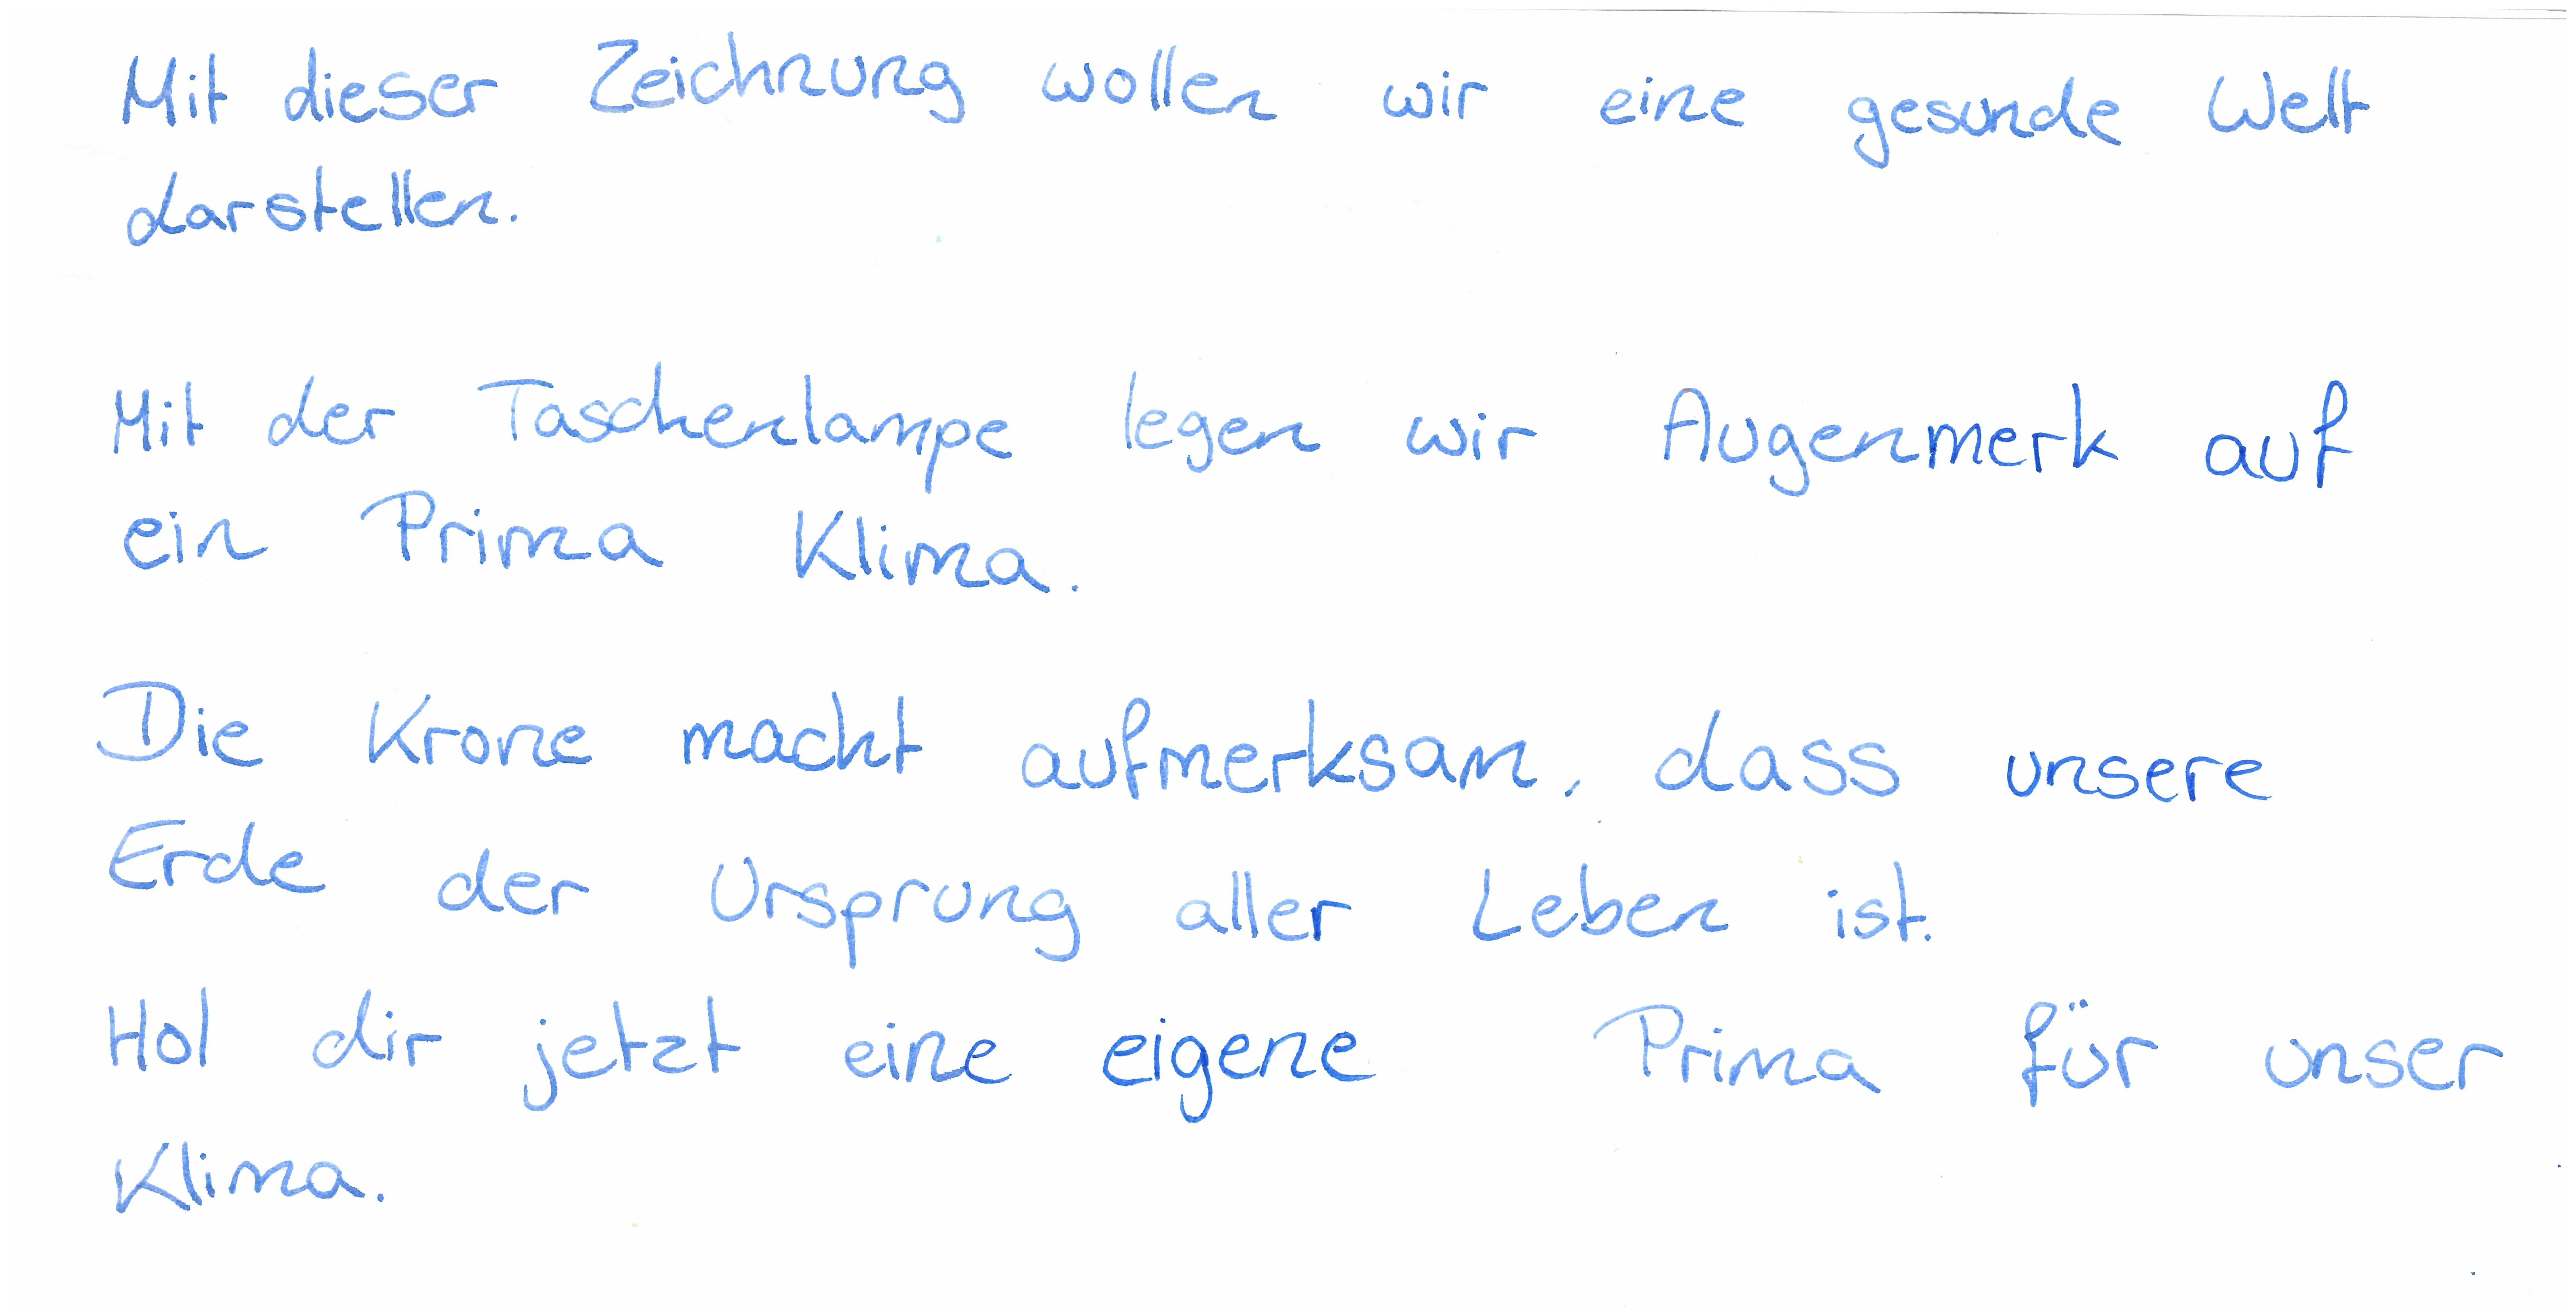 Mit dieser Zeichnung wollen wir eine gesunde Welt
darstellen.
Mit der Taschenlampe legen wir Augenmerk auf
ein Prima Klima.
Die Krone macht aufmerksam, dass unsere
Erde der Ursprung aller Leben ist.
Hol dir jetzt eine eigene Prima für unser
Klima.